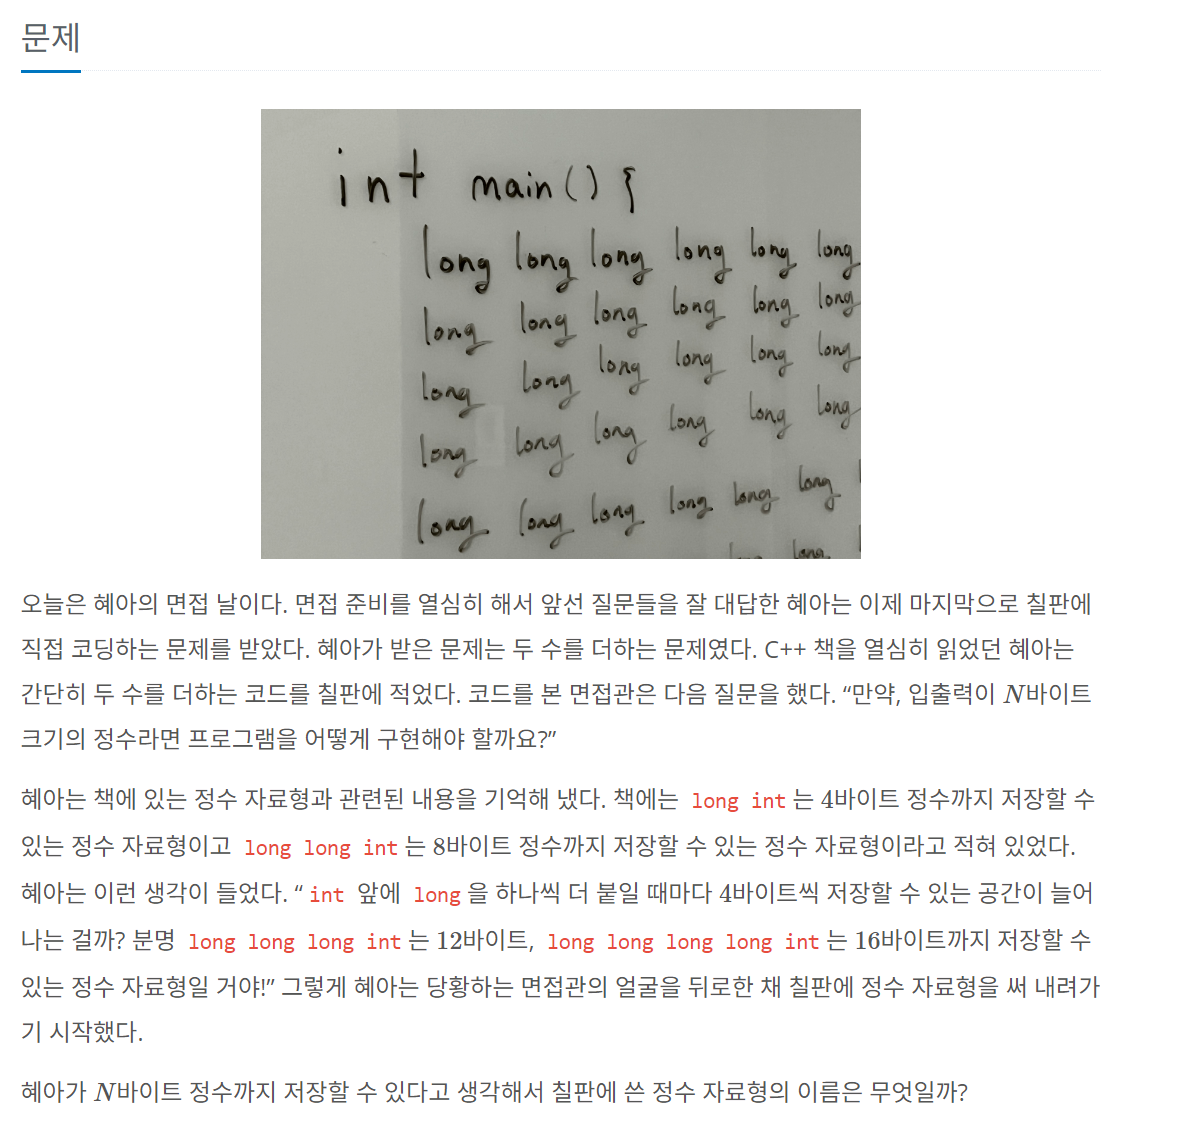 문제
int main() {
long long long long long long
long long long long long long
long long long long long long
long long long long long long
long long long long long long
long
오늘은 혜아의 면접 날이다. 면접 준비를 열심히 해서 앞선 질문들을 잘 대답한 혜아는 이제 마지막으로 칠판에
직접 코딩하는 문제를 받았다. 혜아가 받은 문제는 두 수를 더하는 문제였다. C++ 책을 열심히 읽었던 혜아는
간단히 두 수를 더하는 코드를 칠판에 적었다. 코드를 본 면접관은 다음 질문을 했다. “만약, 입출력이 N바이트
크기의 정수라면 프로그램을 어떻게 구현해야 할까요?”
혜아는 책에 있는 정수 자료형과 관련된 내용을 기억해 냈다. 책에는 long int 는 4바이트 정수까지 저장할 수
있는 정수 자료형이고 long long int 는 8바이트 정수까지 저장할 수 있는 정수 자료형이라고 적혀 있었다.
혜아는 이런 생각이 들었다. “ int 앞에 long 을 하나씩 더 붙일 때마다 4바이트씩 저장할 수 있는 공간이 늘어
나는 걸까? 분명 long long long int 는 12바이트, long long long long int 는 16바이트까지 저장할 수
있는 정수 자료형일 거야!” 그렇게 혜아는 당황하는 면접관의 얼굴을 뒤로한 채 칠판에 정수 자료형을 써 내려가
기 시작했다.
혜아가 N바이트 정수까지 저장할 수 있다고 생각해서 칠판에 쓴 정수 자료형의 이름은 무엇일까?